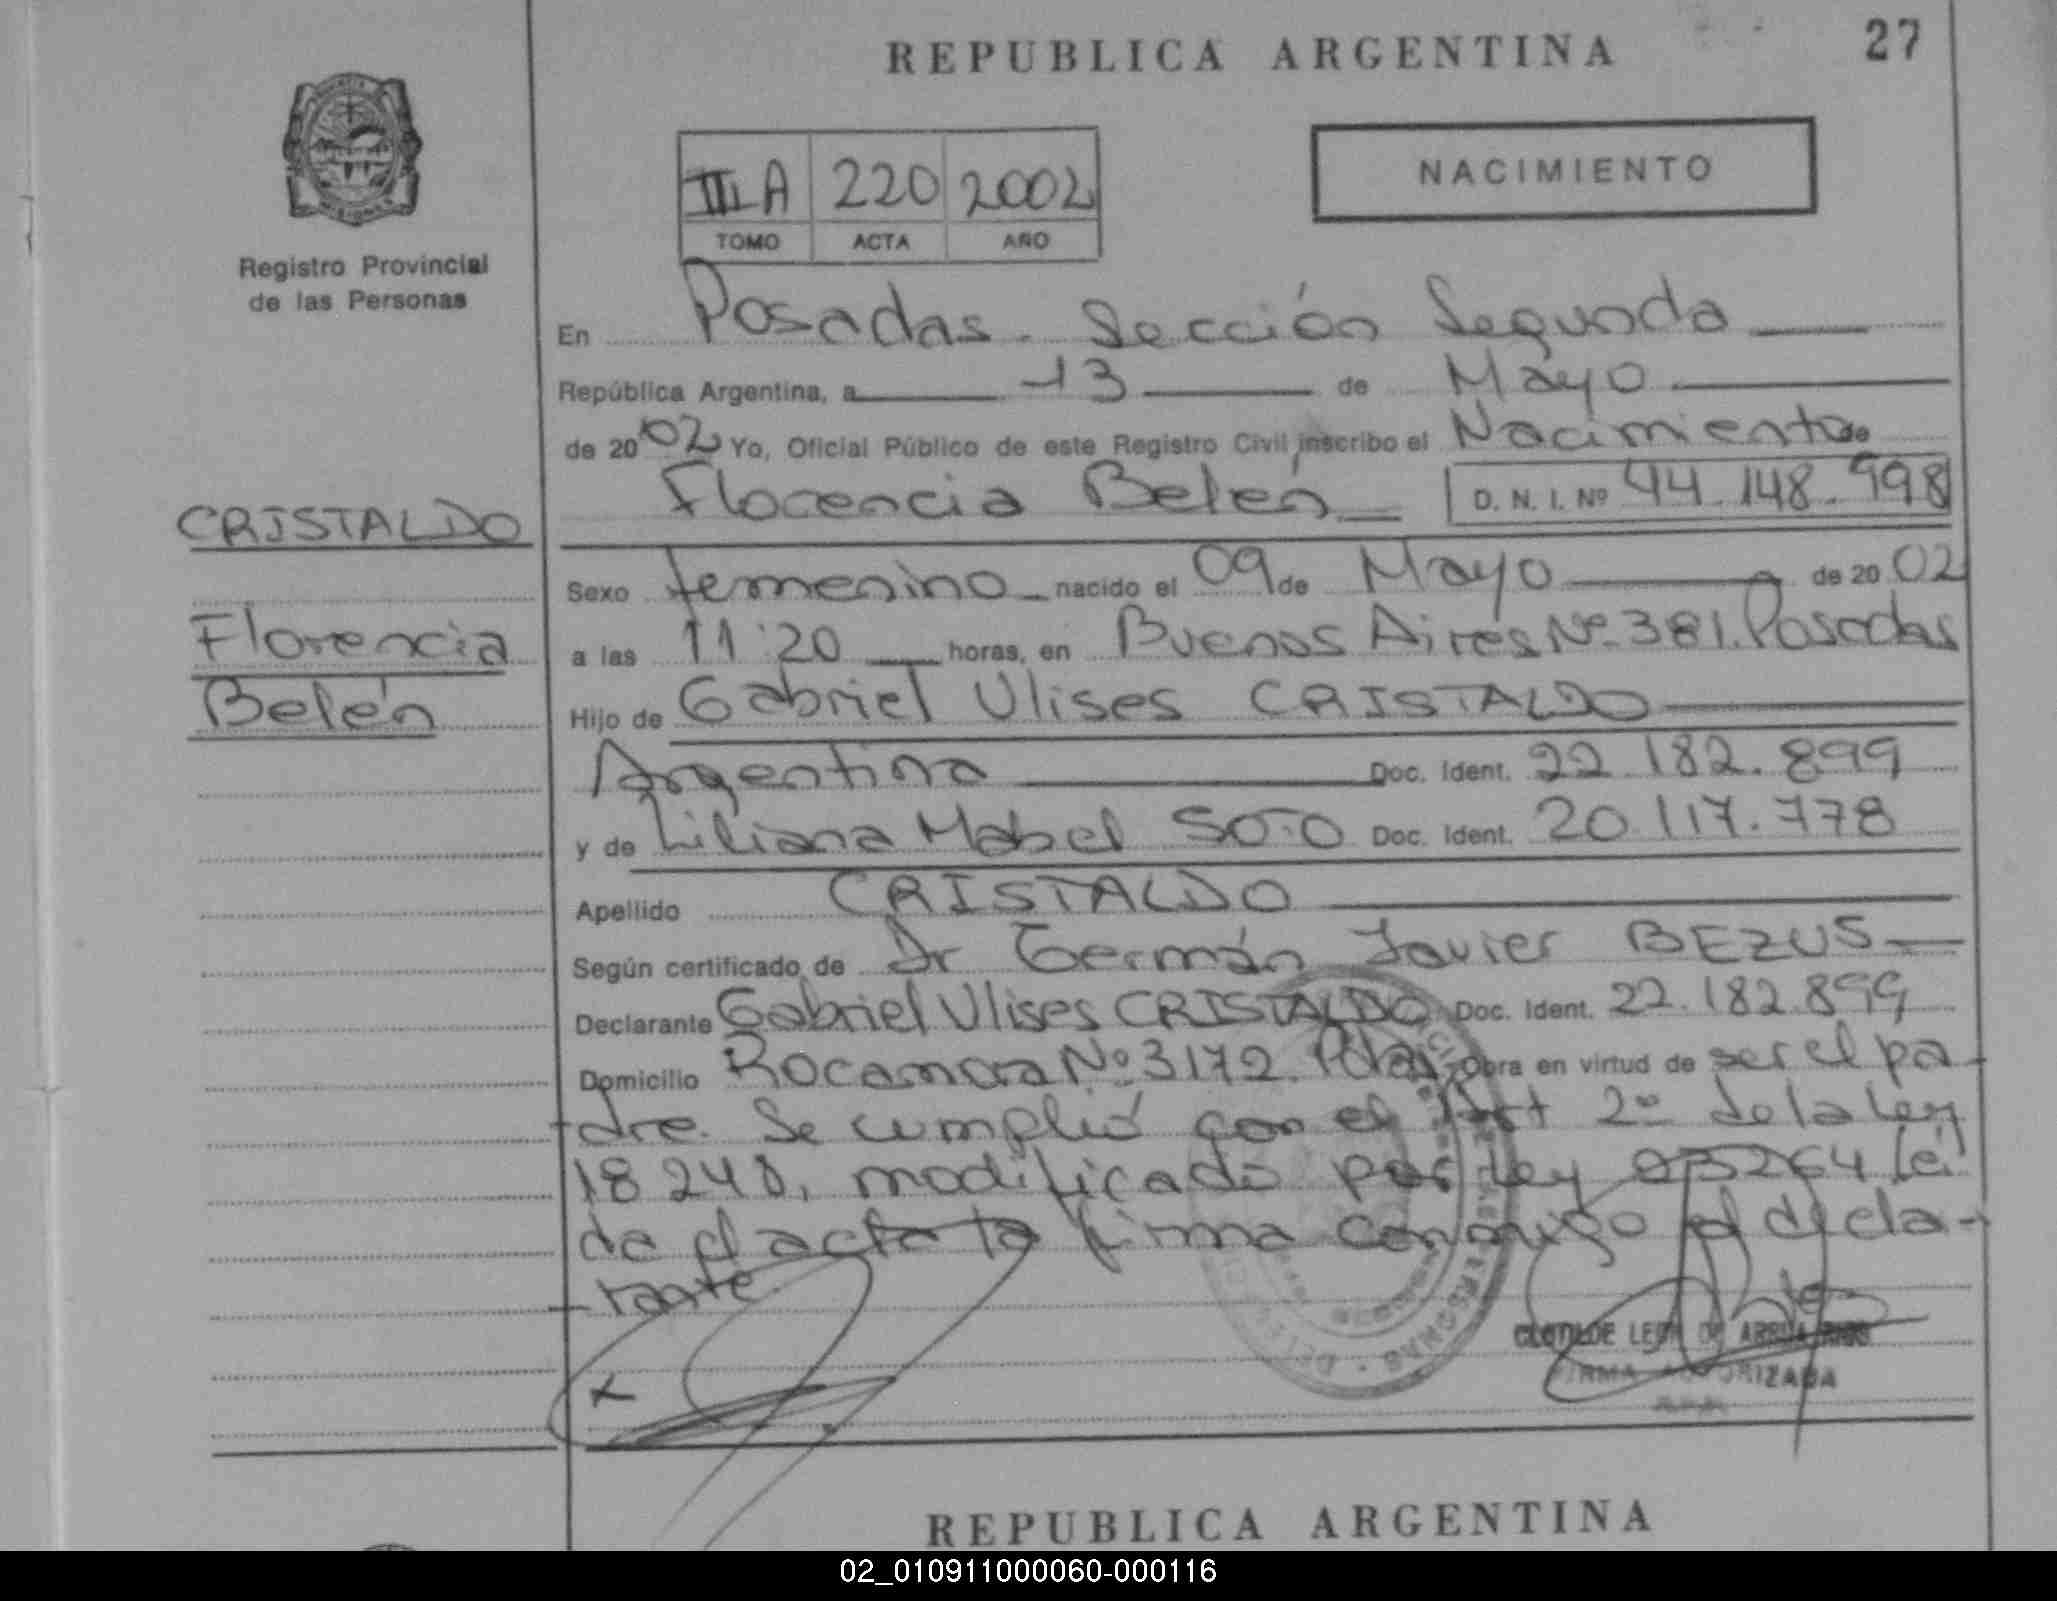 REPUBLICA ARGENTINA
27
MISIONES
Registro Provincial
de las Personas
III A 220 2002
TOMO ACTA AÑO
NACIMIENTO
En Posadas - Sección Segunda
República Argentina, a 13 de Mayo
de 2002 Yo, Oficial Público de este Registro Civil inscribo el Nacimiento de
Florencia Belén D. N. I. Nº 44.148.998
CRISTALDO
Florencia
Belén
Sexo femenino nacido el 09 de Mayo de 2002
a las 11:20 horas, en Buenos Aires Nº 381. Posadas
Hijo de Gabriel Ulises CRISTALDO
Argentina Doc. Ident. 22.182.899
y de Liliana Mabel SOTO Doc. Ident. 20.117.778
Apellido CRISTALDO
Según certificado de Dr Germán Javier BEZUS
Declarante Gabriel Ulises CRISTALDO Doc. Ident. 22.182.899
Domicilio Rocamora Nº 3172. Pdas Obra en virtud de ser el pa-
dre. Se cumplió con el Art 2º de la Ley
18248, modificado por Ley 23264 leí
da el acta la firma conmigo el decla-
rante
CLOTILDE DE
FIRMA AUTORIZADA
REPUBLICA ARGENTINA
02_010911000060-000116